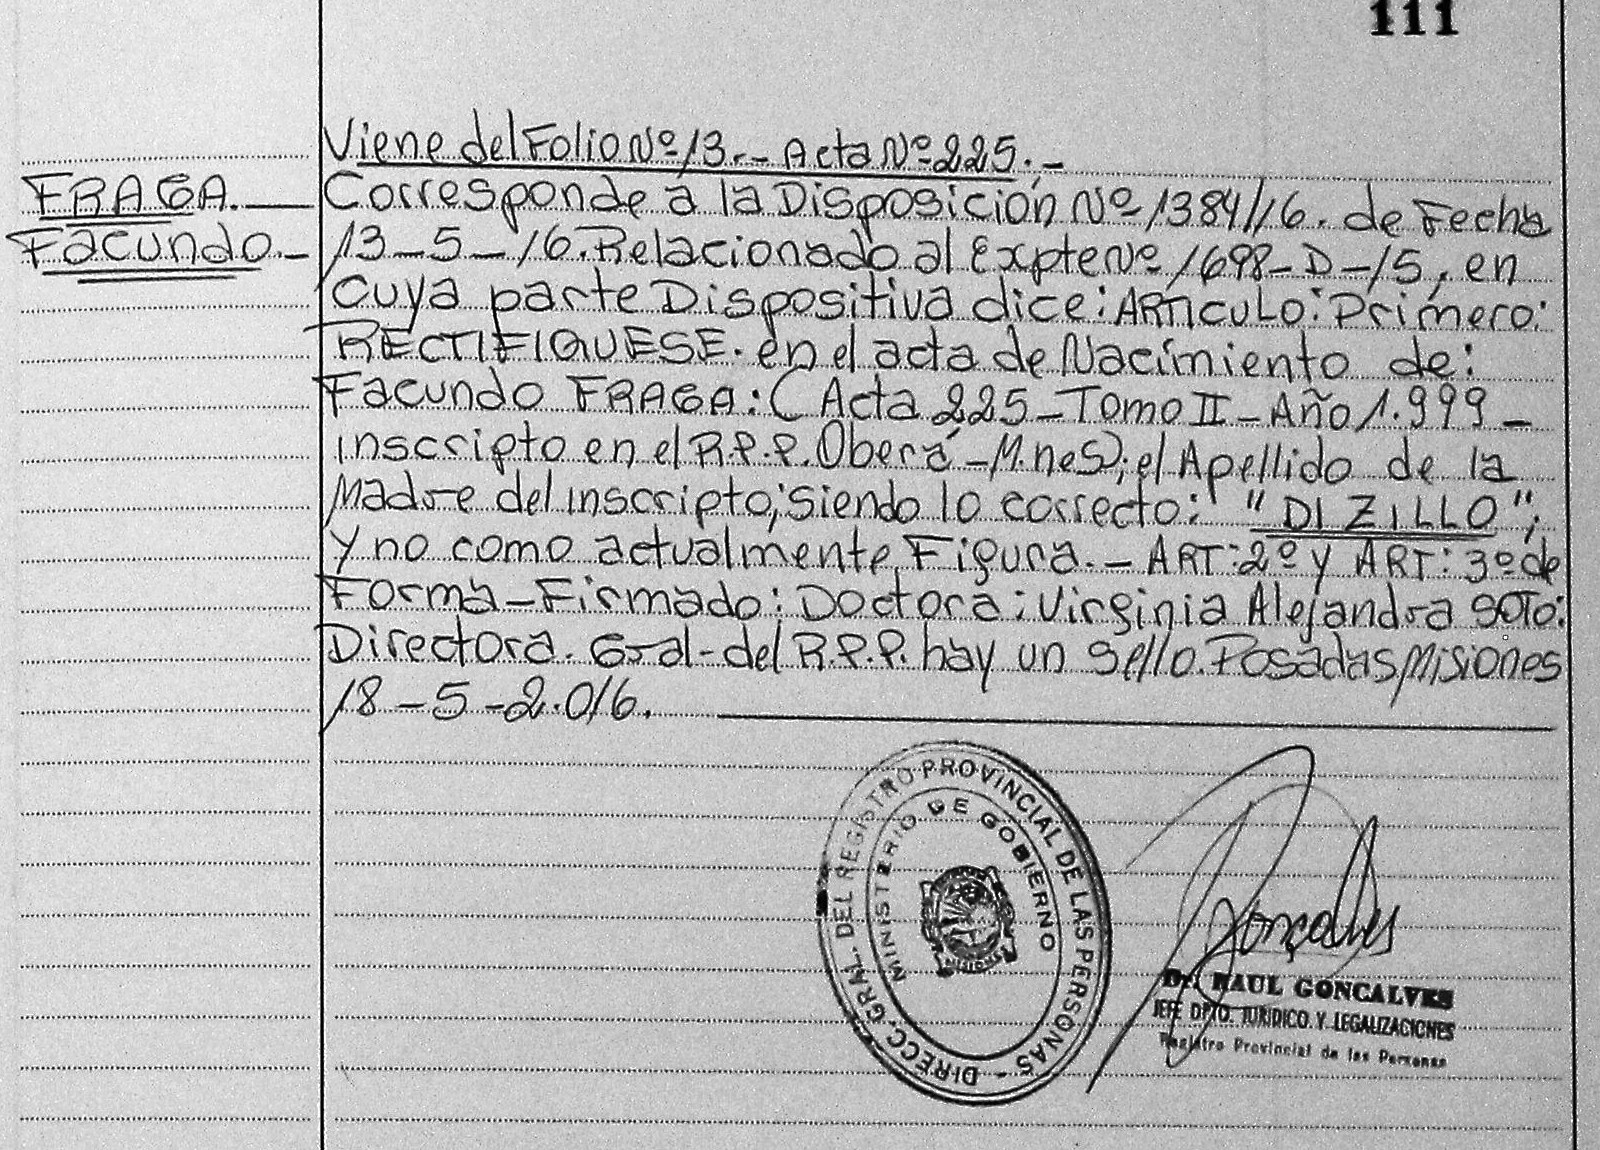 111
Viene del Folio Nº 13.- Acta Nº 225.-
FRAGA. Corresponde a la Disposición Nº 1384/16. de Fecha
Facundo.- 13-5-16. Relacionado al Expte Nº 1698-D-15, en
cuya parte Dispositiva dice: ARTICULO: Primero:
RECTIFIQUESE. en el acta de Nacimiento de:
Facundo FRAGA: (Acta 225-Tomo II-Año 1.999-
inscripto en el R.P.P. Oberá-M.nes); el Apellido de la
Madre del inscripto; siendo lo correcto: "DI ZILLO";
y no como actualmente Figura.- ART: 2º y ART: 3º de
Forma-Firmado: Doctora: Virginia Alejandra SOTO:
Directora. Gral-del R.P.P. hay un sello. Posadas Misiones
18-5-2.016.
DIRECC. GRAL. DEL REGISTRO PROVINCIAL DE LAS PERSONAS -
MINISTERIO DE GOBIERNO
MISIONES
Goncalves
Dr. RAUL GONCALVES
JEFE DPTO. JURIDICO Y LEGALIZACIONES
Registro Provincial de las Personas